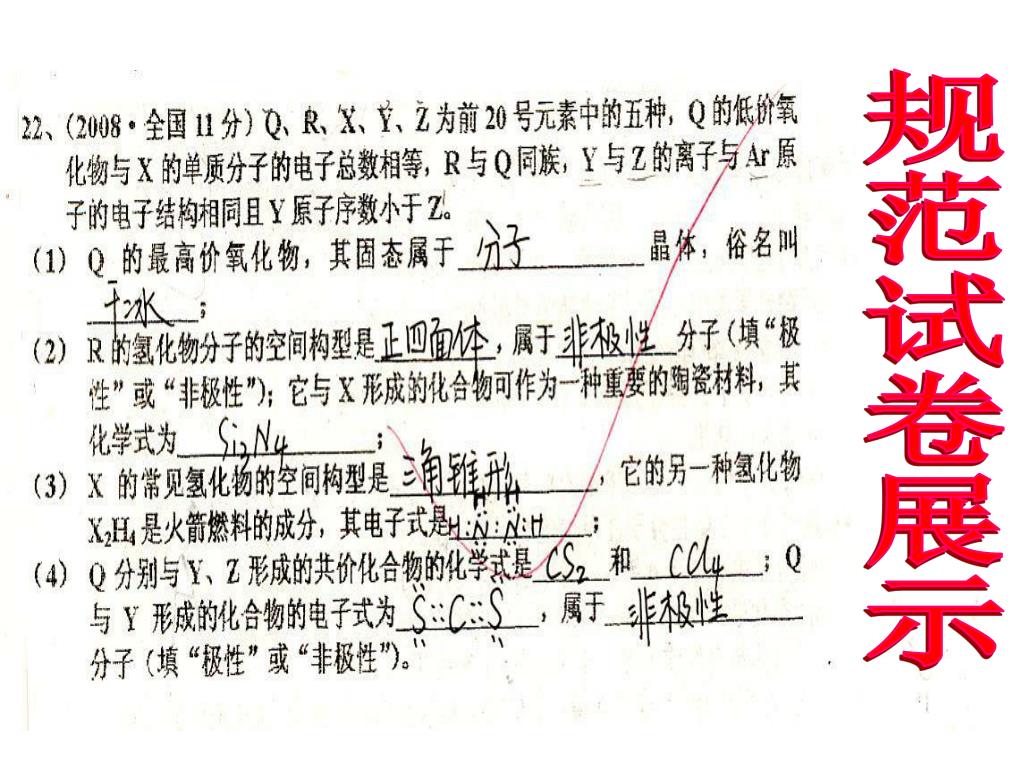 22、(2008·全国11分)Q、R、X、Y、Z为前20号元素中的五种，Q的低价氧
化物与X的单质分子的电子总数相等，R与Q同族，Y与Z的离子与Ar原
子的电子结构相同且Y原子序数小于Z。
(1) Q的最高价氧化物，其固态属于 分子 晶体，俗名叫
干冰；
(2) R的氢化物分子的空间构型是 正四面体，属于 非极性 分子（填“极
性”或“非极性”）；它与X形成的化合物可作为一种重要的陶瓷材料，其
化学式为 Si3N4；
(3) X的常见氢化物的空间构型是 三角锥形，它的另一种氢化物
H H
X2H4是火箭燃料的成分，其电子式是H:N:N:H；
(4) Q分别与Y、Z形成的共价化合物的化学式是 CS2 和 CCl4；Q
与Y形成的化合物的电子式为 S::C::S，属于 非极性
分子（填“极性”或“非极性”）。
规范试卷展示